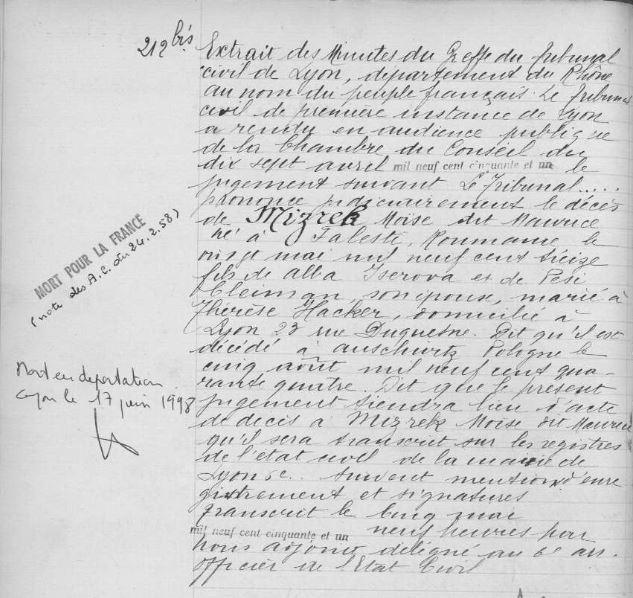 212 bis
Extrait des Minutes du Greffe du Tribunal
civil de Lyon, département du Rhône
au nom du peuple français. Le Tribunal
civil de première instance de Lyon
a rendu en audience publique
de la Chambre du Conseil du
dix sept avril mil neuf cent cinquante et un le
jugement suivant Le Tribunal.....
prononce judiciairement le décès
de Mizrek Moise dit Maurice
né à Faleste, Roumanie le
vingt mai mil neuf cent treize
fils de Abba Iserova et de Pesi
Cleiman son épouse, marié à
Thérèse Hacker, domicilié à
Lyon 23 rue Duquesne. Dit qu'il est
décédé à Auschwitz Pologne le
cinq août mil neuf cent qua-
rante quatre. Dit que le présent
jugement tiendra lieu d'acte
de décès à Mizrek Moise dit Maurice
qu'il sera transcrit sur les registres
de l'état civil de la mairie de
Lyon 6e. Suivent mention d'enre
gistrement et signatures
Transcrit le cinq mai
mil neuf cent cinquante et un neuf heures par
nous adjoint délégué au 6e arr.
officier de l'Etat Civil
MORT POUR LA FRANCE
(note des A.C. du 24.2.58)
Mort en déportation
Lyon le 17 juin 1998